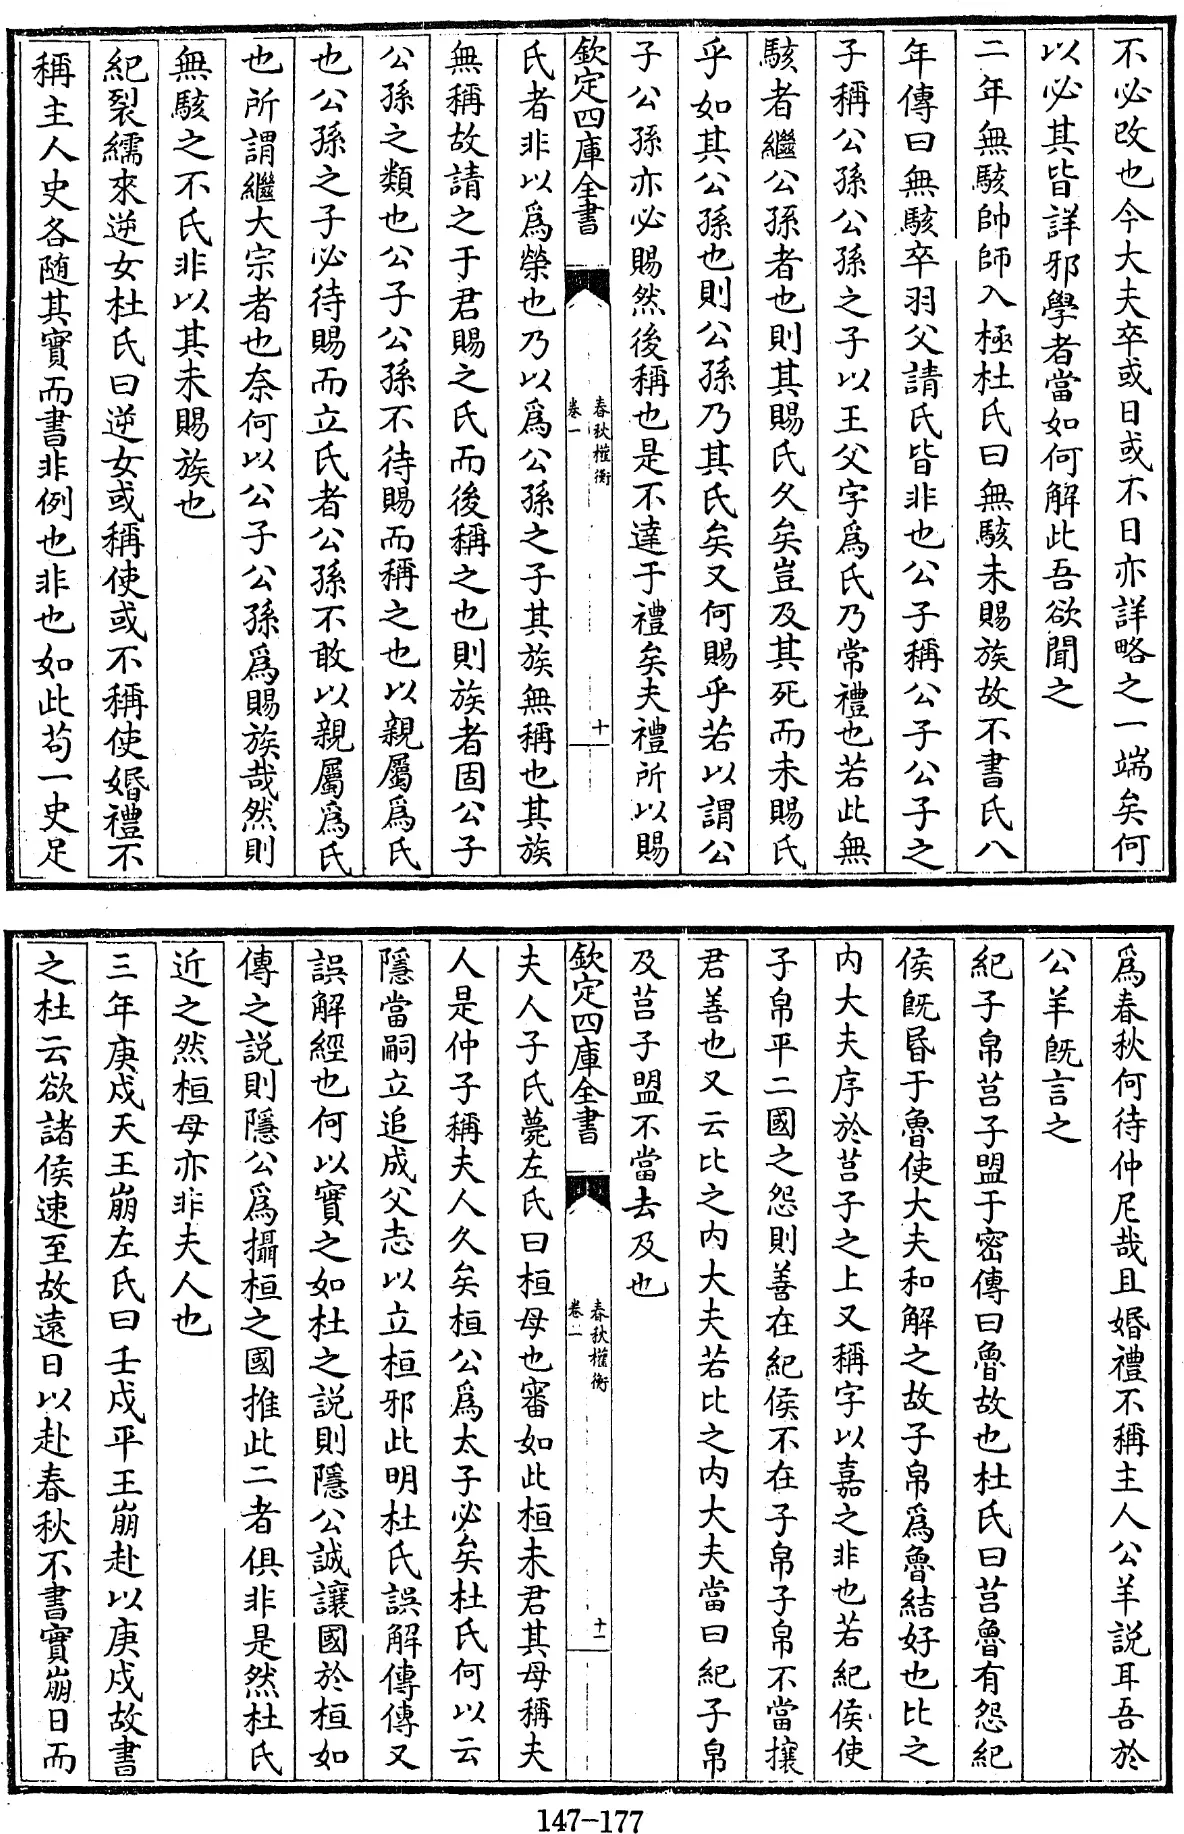 不必改也今大夫卒或日或不日亦詳略之一端矣何
以必其皆詳邪學者當如何解此吾欲聞之
二年無駭帥師入極杜氏曰無駭未賜族故不書氏八
年傳曰無駭卒羽父請氏皆非也公子稱公子公子之
子稱公孫公孫之子以王父字爲氏乃常禮也若此無
駭者繼公孫者也則其賜氏久矣豈及其死而未賜氏
乎如其公孫也則公孫乃其氏矣又何賜乎若以謂公
子公孫亦必賜然後稱也是不達于禮矣夫禮所以賜
欽定四庫全書
春秋權衡
卷一
十
氏者非以爲榮也乃以爲公孫之子其族無稱也其族
無稱故請之于君賜之氏而後稱之也則族者固公子
公孫之類也公子公孫不待賜而稱之也以親屬爲氏
也公孫之子必待賜而立氏者公孫不敢以親屬爲氏
也所謂繼大宗者也奈何以公子公孫爲賜族哉然則
無駭之不氏非以其未賜族也
紀裂繻來逆女杜氏曰逆女或稱使或不稱使婚禮不
稱主人史各随其實而書非例也非也如此苟一史足
爲春秋何待仲尼哉且婚禮不稱主人公羊説耳吾於
公羊旣言之
紀子帛莒子盟于密傳曰魯故也杜氏曰莒魯有怨紀
侯旣昏于魯使大夫和解之故子帛爲魯結好也比之
内大夫序於莒子之上又稱字以嘉之非也若紀侯使
子帛平二國之怨則善在紀侯不在子帛子帛不當攘
君善也又云比之内大夫若比之内大夫當曰紀子帛
及莒子盟不當去及也
欽定四庫全書
春秋權衡
卷一
十一
夫人子氏薨左氏曰桓母也審如此桓未君其母稱夫
人是仲子稱夫人久矣桓公爲太子必矣杜氏何以云
隱當嗣立追成父志以立桓邪此明杜氏誤解傳傳又
誤解經也何以實之如杜之説則隱公誠讓國於桓如
傳之説則隱公爲攝桓之國推此二者俱非是然杜氏
近之然桓母亦非夫人也
三年庚戌天王崩左氏曰壬戌平王崩赴以庚戌故書
之杜云欲諸侯速至故遠日以赴春秋不書實崩日而
147-177